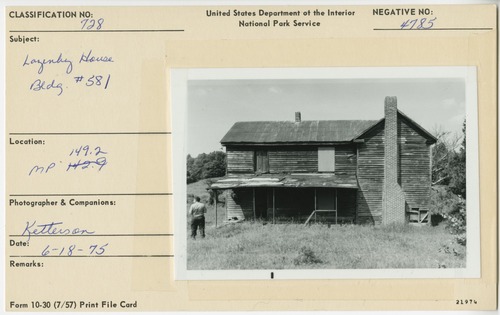 CLASSIFICATION NO:
728
United States Department of the Interior
National Park Service
NEGATIVE NO:
4785
Subject:
Lazenby House
Bldg. #581
Location:
149.2
MP 142.9
Photographer & Companions:
Ketterson
Date:
6-18-75
Remarks:
Form 10-30 (7/57) Print File Card
21974